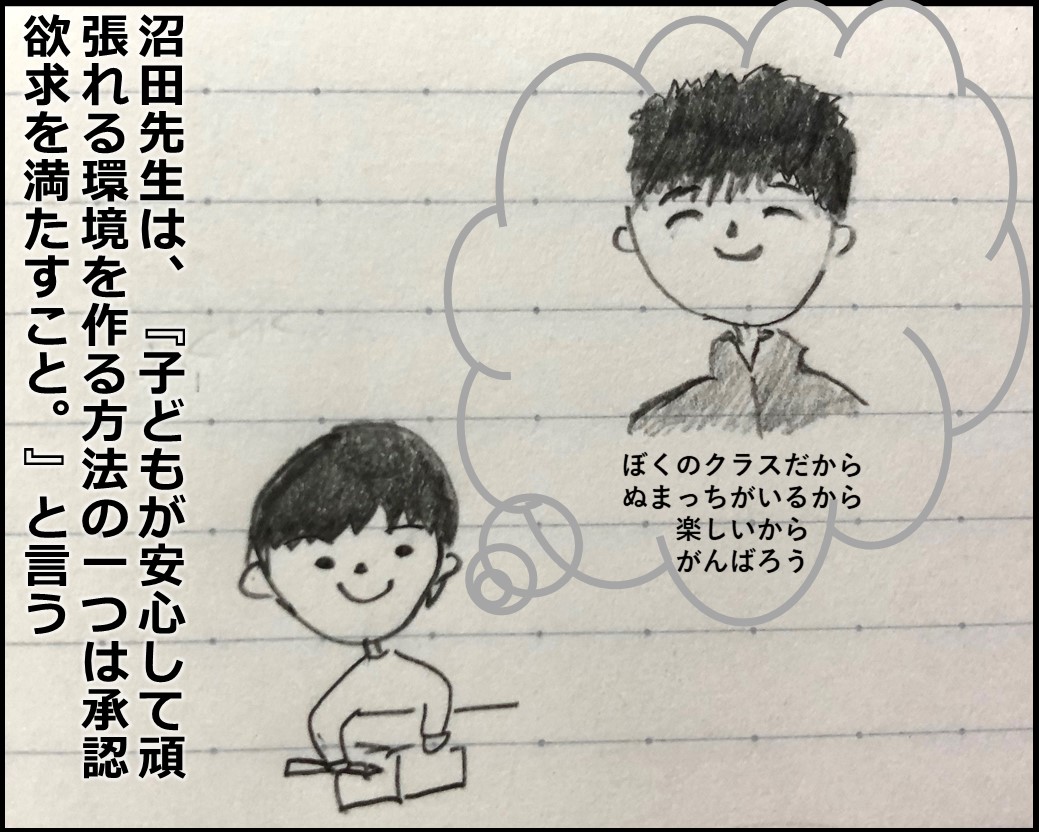 沼田先生は、『子どもが安心して頑
張れる環境を作る方法の一つは承認
欲求を満たすこと。』と言う
ぼくのクラスだから
ぬまっちがいるから
楽しいから
がんばろう